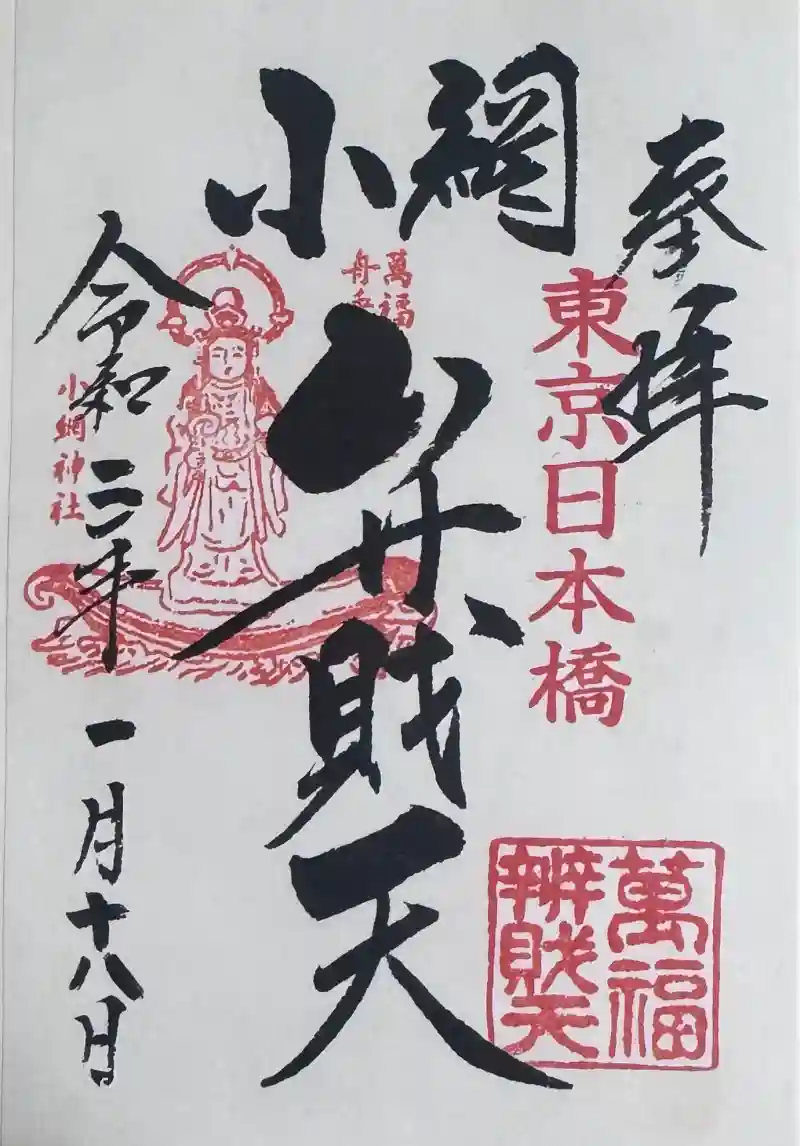 奉拝
東京日本橋
小網
弁財天
萬福
舟
小網神社
令和三年一月十八日
萬福
辨財天